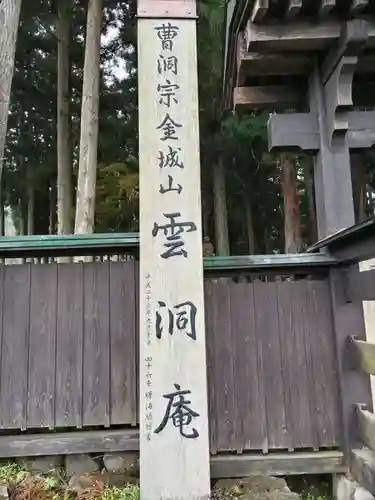 曹洞宗金城山雲洞庵